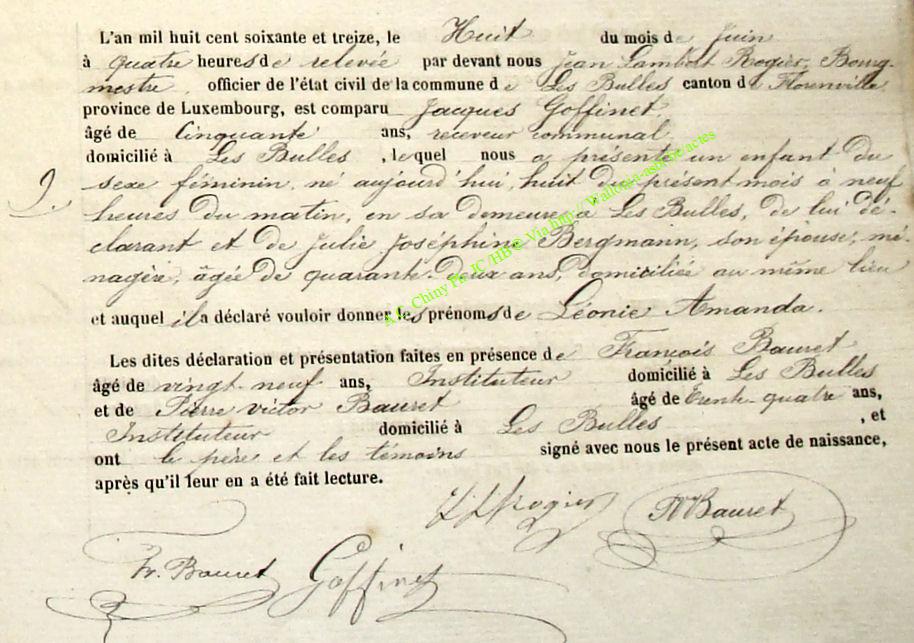 L'an mil huit cent soixante et treize, le Huit du mois de Juin
à quatre heures de relevée par devant nous Jean Lambert Rogier, Bourg-
mestre, officier de l'état civil de la commune de Les Bulles canton de Florenville
province de Luxembourg, est comparu Jacques Goffinet
âgé de Cinquante ans, receveur communal
domicilié à Les Bulles, lequel nous a présenté un enfant du
sexe féminin, né aujourd'hui, huit du présent mois à neuf
9.
heures du matin, en sa demeure à Les Bulles, de lui dé-
clarant et de Julie Joséphine Bergmann, son épouse, mé-
nagère, âgée de quarante-deux ans, domiciliée au même lieu
et auquel il a déclaré vouloir donner les prénoms de Léonie Amanda.
Les dites déclaration et présentation faites en présence de François Bauret
âgé de vingt-neuf ans, Instituteur domicilié à Les Bulles
et de Pierre victor Bauret âgé de trente-quatre ans,
Instituteur domicilié à Les Bulles, et
ont le père et les témoins signé avec nous le présent acte de naissance,
après qu'il leur en a été fait lecture.
JLRogier PVBauret
Fr. Bauret Goffinet